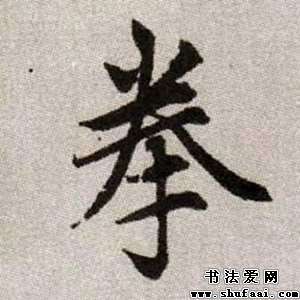 拳
书法爱网
www.shufaai.com